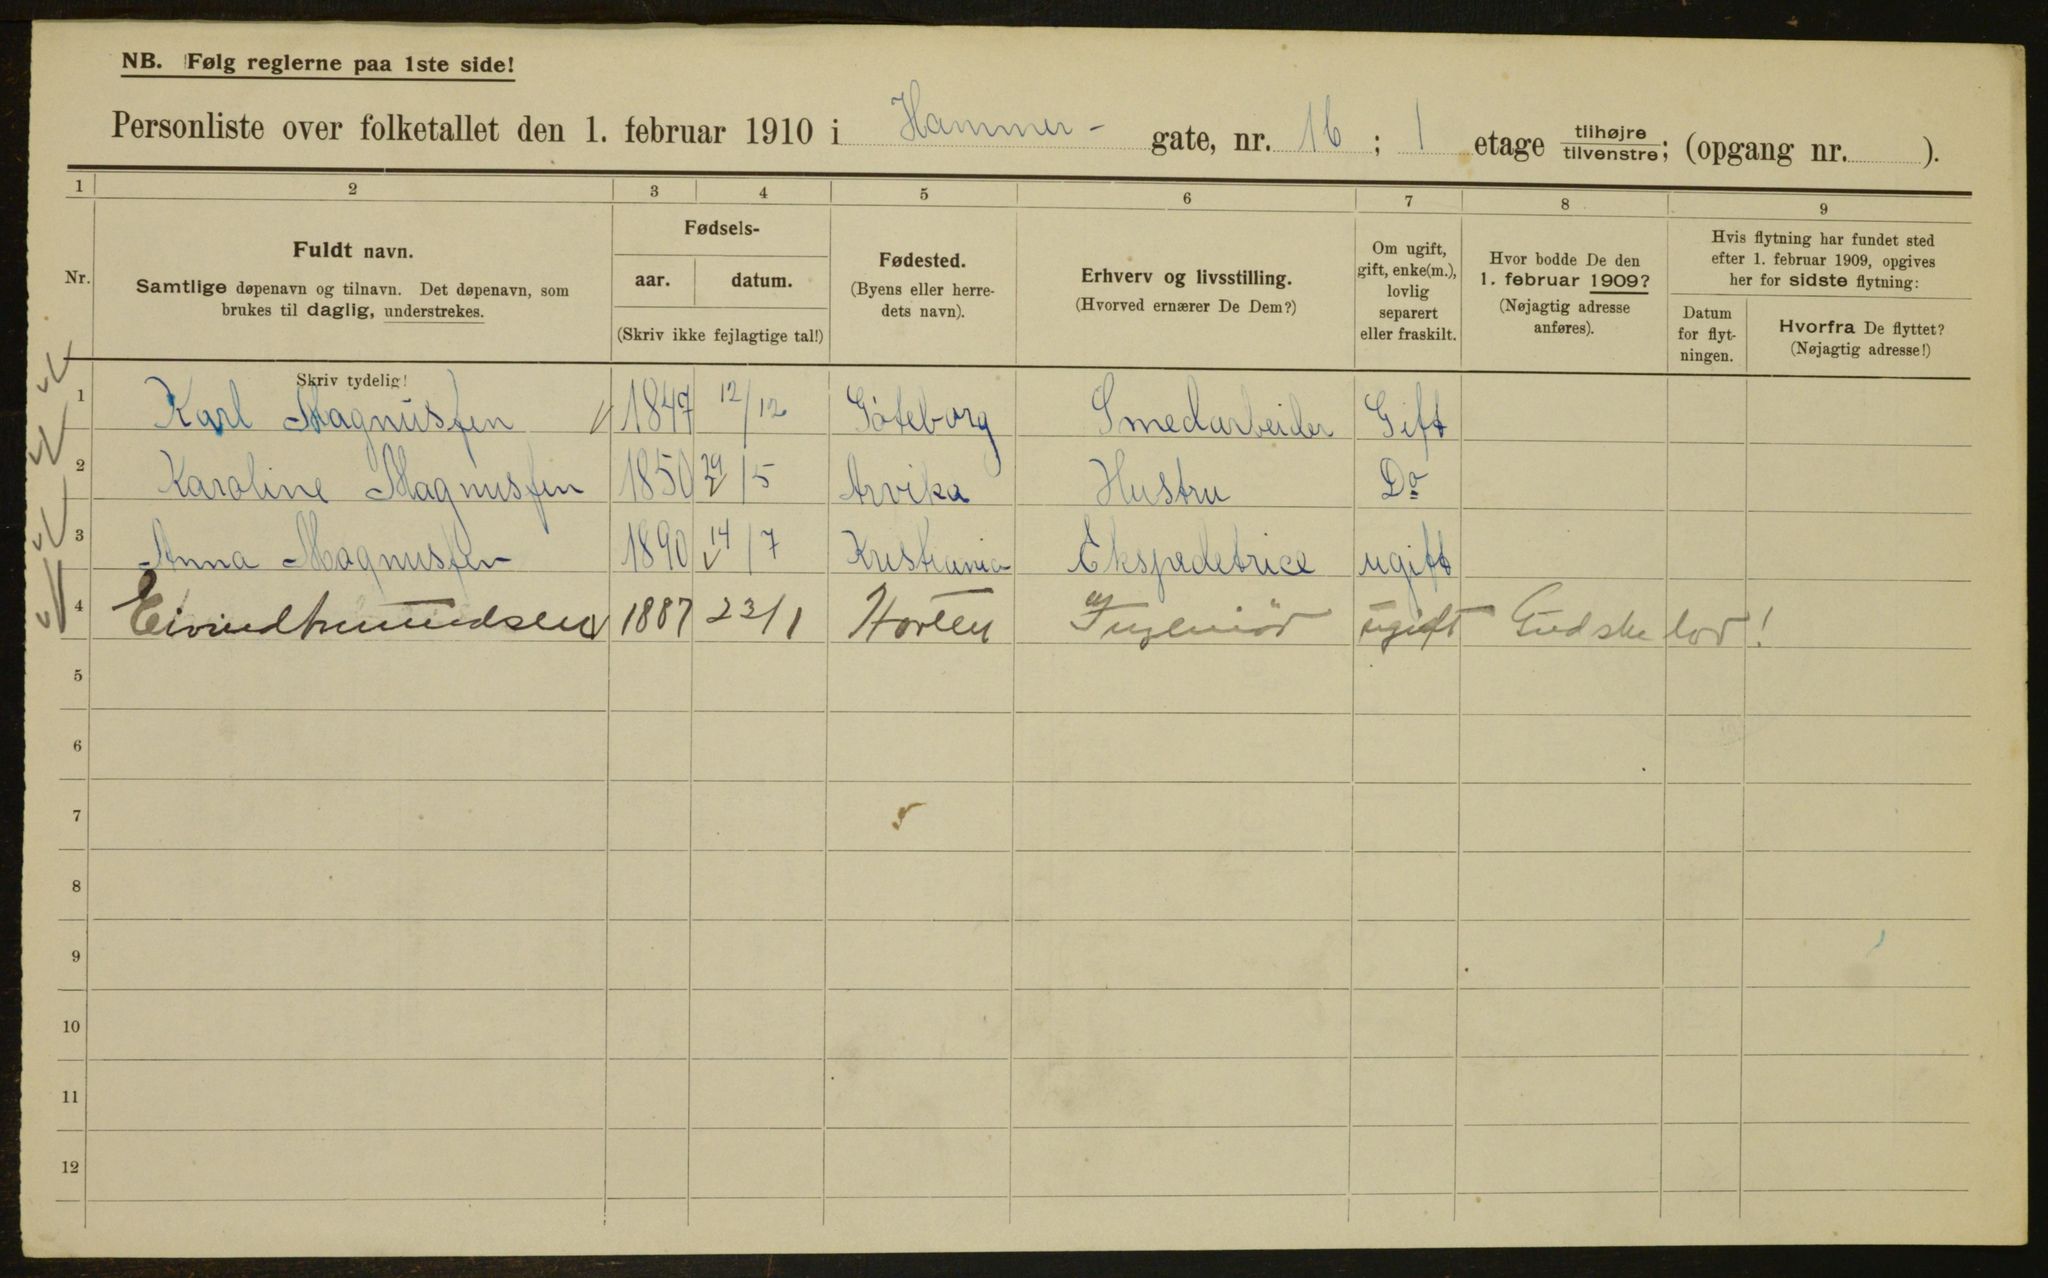 NB. Følg reglerne paa 1ste side!
Personliste over folketallet den 1. februar 1910 i Hammer- gate, nr. 16 ; 1 etage tilhøjre/tilvenstre; (opgang nr. ).
1 2 3 4 5 6 7 8 9
Nr.
Fuldt navn.
Samtlige døpenavn og tilnavn. Det døpenavn, som
brukes til daglig, understrekes.
Fødsels-
aar. datum.
(Skriv ikke fejlagtige tal!)
Fødested.
(Byens eller herre-
dets navn).
Erhverv og livsstilling.
(Hvorved ernærer De Dem?)
Om ugift,
gift, enke(m.),
lovlig
separert
eller fraskilt.
Hvor bodde De den
1. februar 1909?
(Nøjagtig adresse
anføres).
Hvis flytning har fundet sted
efter 1. februar 1909, opgives
her for sidste flytning:
Datum
for flyt-
ningen.
Hvorfra De flyttet?
(Nøjagtig adresse!)
Skriv tydelig!
1 Karl Magnussen 1847 12/12 Göteborg Smedarbeider Gift
2 Karoline Magnussen 1850 29/5 Arvika Hustru Do
3 Anna Magnussen 1890 14/7 Kristiania Ekspedetrice ugift
4 Eivind Amundsen 1887 23/1 Horten Ingeniør ugift Gudske lov!
5
6
7
8
9
10
11
12